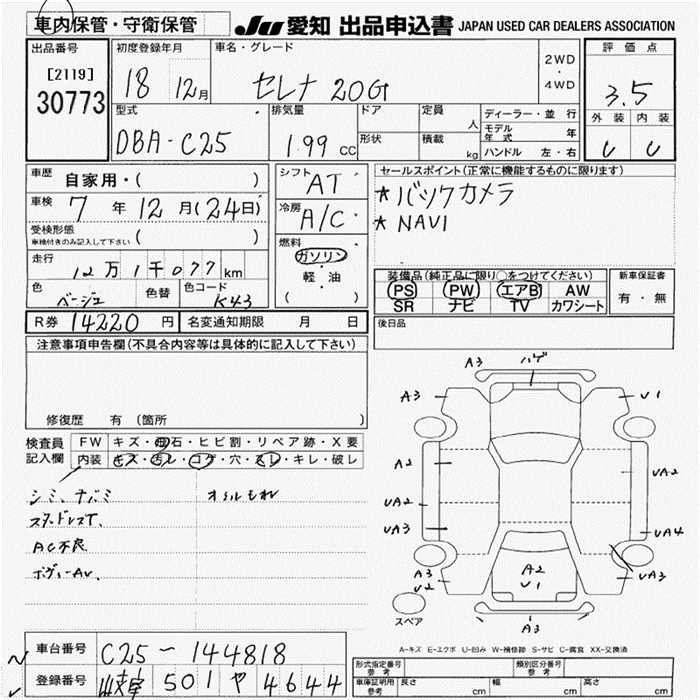 車内保管・守衛保管
JU 愛知 出品申込書 JAPAN USED CAR DEALERS ASSOCIATION
出品番号
[2119]
30773
初度登録年月
18 12月
車名・グレード
セレナ 20G
2WD
・
4WD
評価点
3.5
外装 内装
型式
DBA-C25
排気量
1.99 CC
ドア
形状
定員
人
積載
kg
ディーラー・並行
モデル年式 年
ハンドル 左・右
車歴 自家用・( )
車検 7年 12月(24日)
受検形態
車検付きのみ記入して下さい ( )
走行 12万1千077km
色 ベージュ 色替 色コード K43
シフト AT
冷房 A/C
燃料
ガソリン
軽・油
( )
セールスポイント(正常に機能するものに限ります)
* バックカメラ
* NAVI
装備品(純正品に限り○をつけてください)
PS PW エアB AW
SR ナビ TV カワシート
新車保証書
有・無
R券 14220 円 名変通知期限 月 日
後日品
注意事項申告欄(不具合内容等は具体的に記入して下さい)
修復歴 有 (箇所 )
検査員
記入欄
FW キズ・飛石・ヒビ割・リペア跡・X要
内装 キズ・汚レ・コゲ・穴・スレ・キレ・破レ
シミ、
オイルもれ
スタッドレスT、
AC不良
ボディーAU、
A3 ハゲ
A3 U1
A2 UA2
UA2
UA3 UA4
A3
U2
A2
U1
UA3
A3
スペア
A-キズ E-エクボ U-凹み W-補修跡 S-サビ C-腐食 XX-交換済
車台番号 C25-144818
登録番号 岐阜 501 ヤ 4644
形式指定番号
参考
類別区分番号
参考
車庫証明用
参考
長さ cm 幅 cm 高さ cm